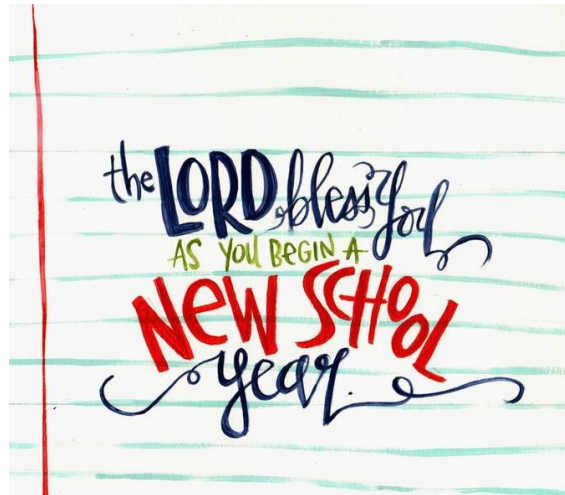 the LORD bless you
AS YOU BEGIN A
NEW SCHOOL
year.